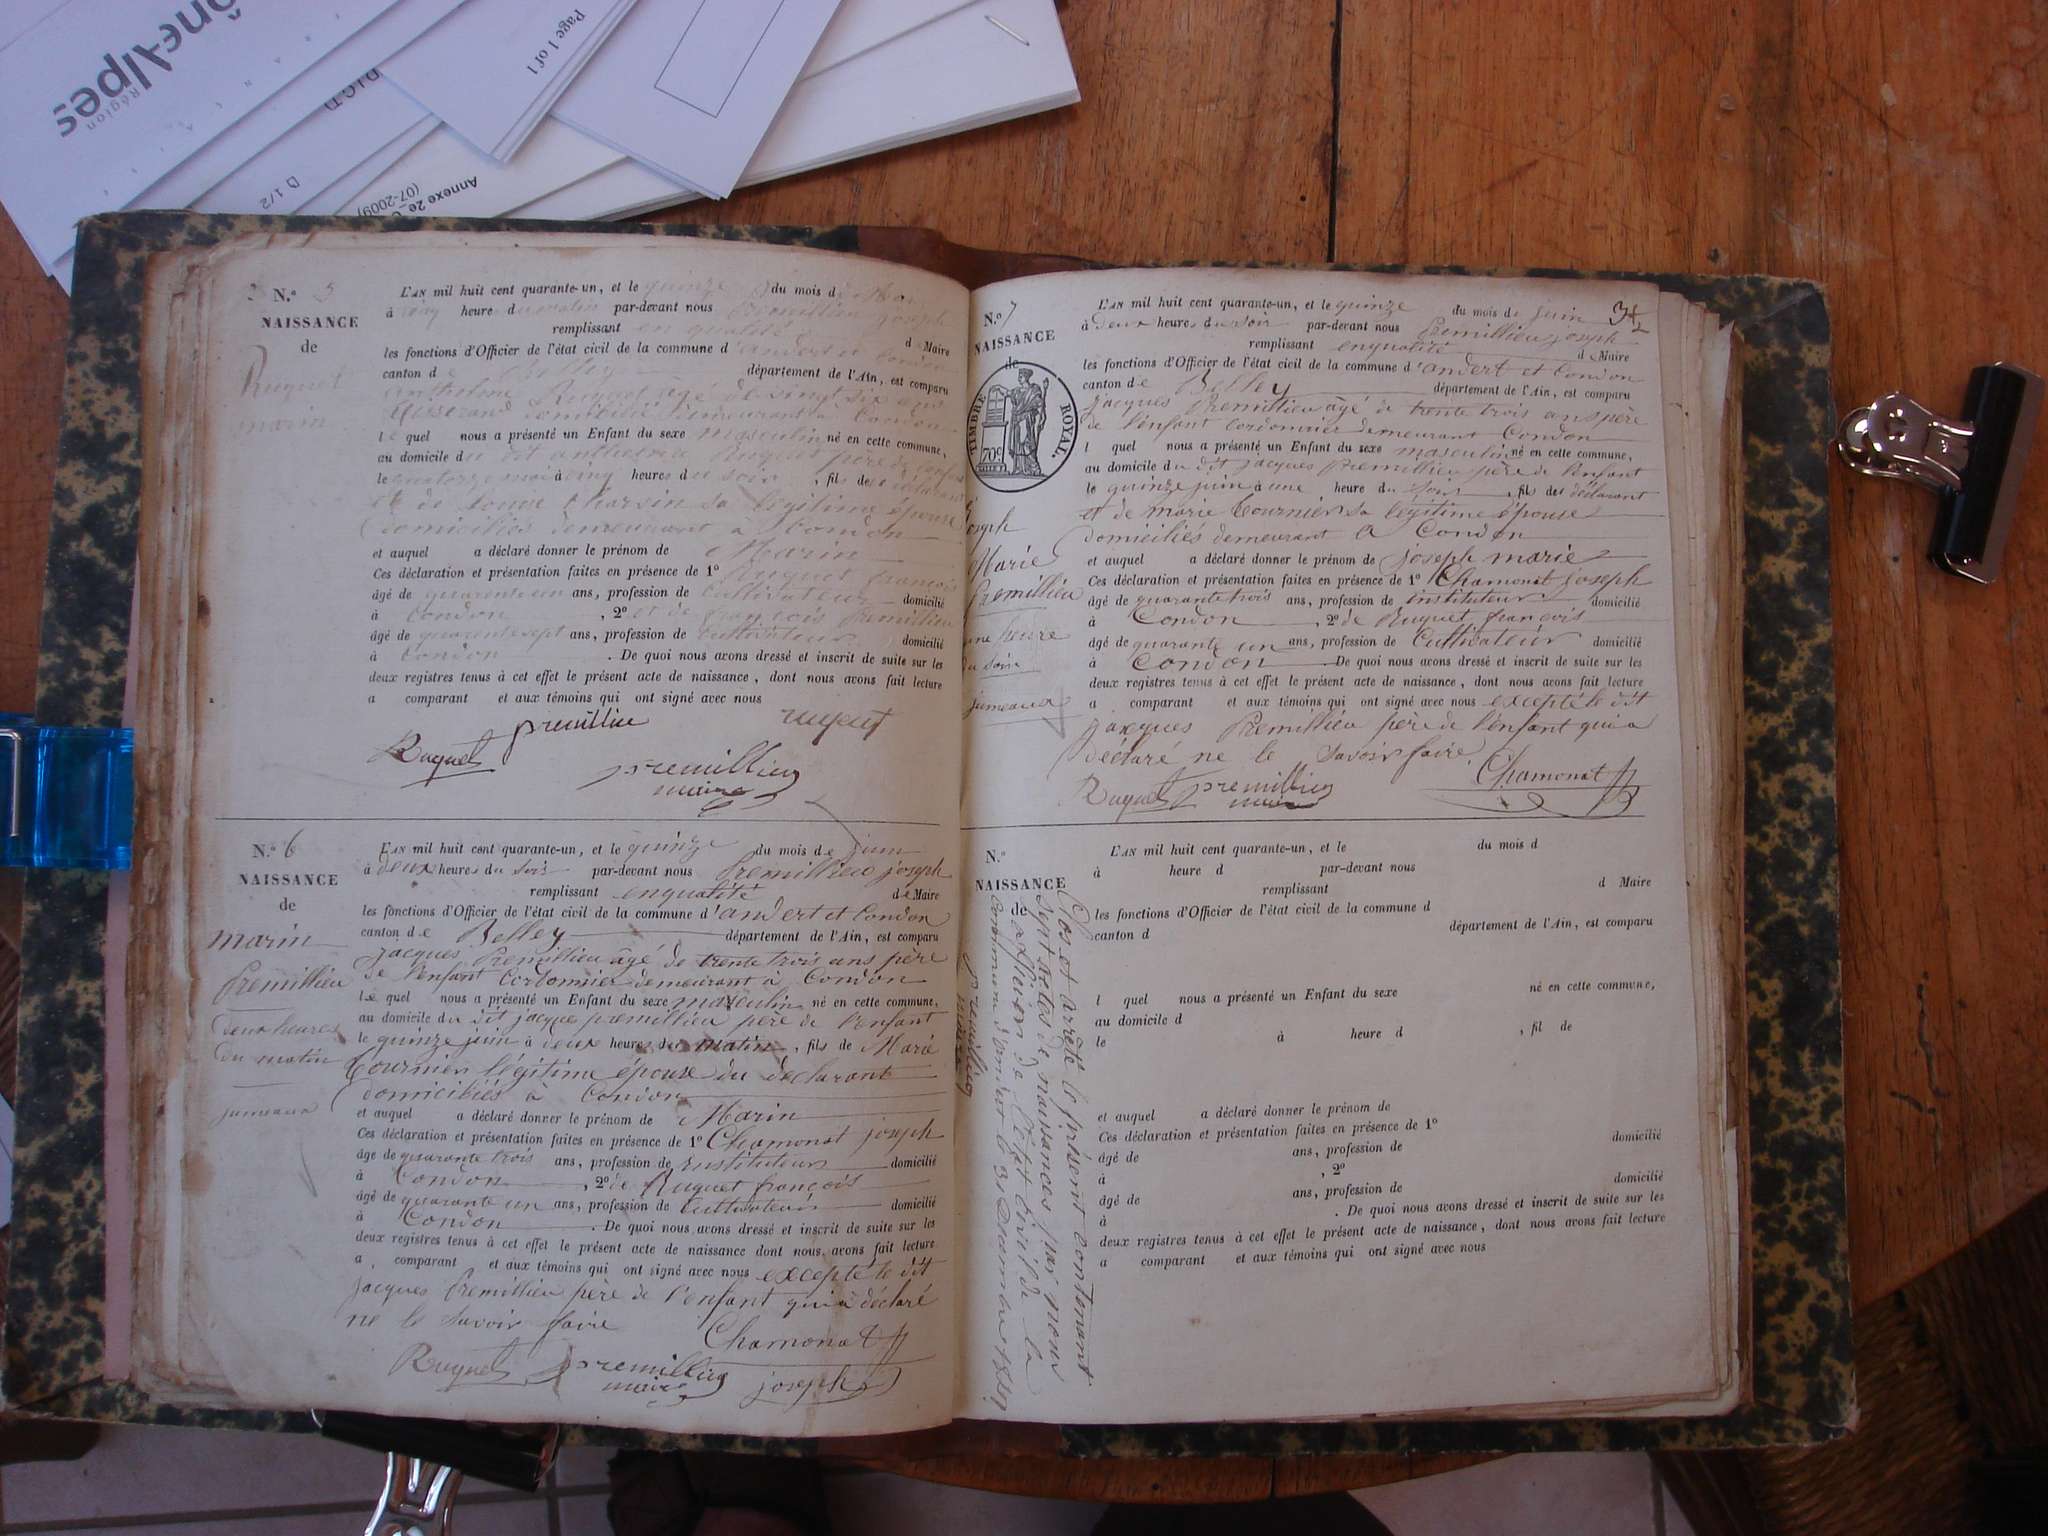 Région
Rhône-Alpes
Page 1 of 1
D 1/2
Annexe 2e
(07-2009)
N.° 5
NAISSANCE
de
Ruquet
marin
L'AN mil huit cent quarante-un, et le quinze du mois de Mai
à cinq heures du matin par-devant nous Premillieu joseph
remplissant en qualité d Maire
les fonctions d'Officier de l'état civil de la commune d'andert et Condon
canton de Belley département de l'Ain, est comparu
anthelme Ruquet âgé de vingt six ans
tisserand domicilié demeurant à Condon
le quel nous a présenté un Enfant du sexe masculin né en cette commune,
au domicile du dit anthelme Ruquet père de l'enfant
le quatorze mai à cinq heures du soir, fils de déclarant
et de Louise Charvin sa légitime épouse
domiciliés demeurant à Condon
et auquel a déclaré donner le prénom de Marin
Ces déclaration et présentation faites en présence de 1° Ruquet françois
âgé de quarante un ans, profession de cultivateur domicilié
à Condon, 2° et de françois Premillieu
âgé de quarante sept ans, profession de cultivateur domicilié
à Condon. De quoi nous avons dressé et inscrit de suite sur les
deux registres tenus à cet effet le présent acte de naissance, dont nous avons fait lecture
a comparant et aux témoins qui ont signé avec nous
premillieu ruquet
Ruquet premillieu
maire
N.° 6
NAISSANCE
de
marin
Premillieu
deux heures
du matin
jumeaux
L'AN mil huit cent quarante-un, et le quinze du mois de juin
à deux heures du soir par-devant nous Premillieu joseph
remplissant enqualité de Maire
les fonctions d'Officier de l'état civil de la commune d'andert et Condon
canton de Belley département de l'Ain, est comparu
jacques Premillieu âgé de trente trois ans père
de l'enfant Cordonnier demeurant à Condon
le quel nous a présenté un Enfant du sexe masculin né en cette commune,
au domicile du dit jacque premillieu père de l'enfant
le quinze juin à deux heures du matin, fils de Marie
Tournier légitime épouse du déclarant
domiciliés à Condon
et auquel a déclaré donner le prénom de Marin
Ces déclaration et présentation faites en présence de 1° Chamonat joseph
âgé de quarante trois ans, profession de instituteur domicilié
à Condon, 2° de Ruquet françois
âgé de quarante un ans, profession de Cultivateur domicilié
à Condon. De quoi nous avons dressé et inscrit de suite sur les
deux registres tenus à cet effet le présent acte de naissance dont nous avons fait lecture
a comparant et aux témoins qui ont signé avec nous excepté le dit
jacques Premillieu père de l'enfant qui a déclaré
ne le savoir faire
Chamonat
Ruquet premillieu
maire joseph
N.° 7
NAISSANCE
de
TIMBRE ROYAL.
70c
joseph
Marie
Premillieu
une heure
du soir
jumeaux
L'AN mil huit cent quarante-un, et le quinze du mois de juin
à deux heures du soir par-devant nous Premillieu joseph
remplissant enqualité d Maire
les fonctions d'Officier de l'état civil de la commune d'andert et Condon
canton de Belley département de l'Ain, est comparu
jacques Premillieu âgé de trente trois ans père
de l'enfant Cordonnier demeurant Condon
l quel nous a présenté un Enfant du sexe masculin né en cette commune,
au domicile du dit jacques premillieu père de l'enfant
le quinze juin à une heure du soir, fils de déclarant
et de marie Tournier sa légitime épouse
domiciliés demeurant à Condon
et auquel a déclaré donner le prénom de joseph marie
Ces déclaration et présentation faites en présence de 1° Chamonat joseph
âgé de quarante trois ans, profession de instituteur domicilié
à Condon, 2° de Ruquet françois
âgé de quarante un ans, profession de Cultivateur domicilié
à Condon. De quoi nous avons dressé et inscrit de suite sur les
deux registres tenus à cet effet le présent acte de naissance, dont nous avons fait lecture
a comparant et aux témoins qui ont signé avec nous excepté le dit
jacques Premillieu père de l'enfant qui a
déclaré ne le savoir faire
Chamonat
Ruquet premillieu
maire
N.°
NAISSANCE
de
Clos et arrêté le présent contenant
sept actes de naissances par nous
officier de l'état civil de la
commune d'andert le 31 décembre 1841
premillieu
maire
L'AN mil huit cent quarante-un, et le du mois d
à heure d par-devant nous
remplissant d Maire
les fonctions d'Officier de l'état civil de la commune d
canton d département de l'Ain, est comparu
l quel nous a présenté un Enfant du sexe né en cette commune,
au domicile d
le à heure d, fil de
et auquel a déclaré donner le prénom de
Ces déclaration et présentation faites en présence de 1°
âgé de ans, profession de domicilié
à, 2°
âgé de ans, profession de domicilié
à. De quoi nous avons dressé et inscrit de suite sur les
deux registres tenus à cet effet le présent acte de naissance, dont nous avons fait lecture
a comparant et aux témoins qui ont signé avec nous